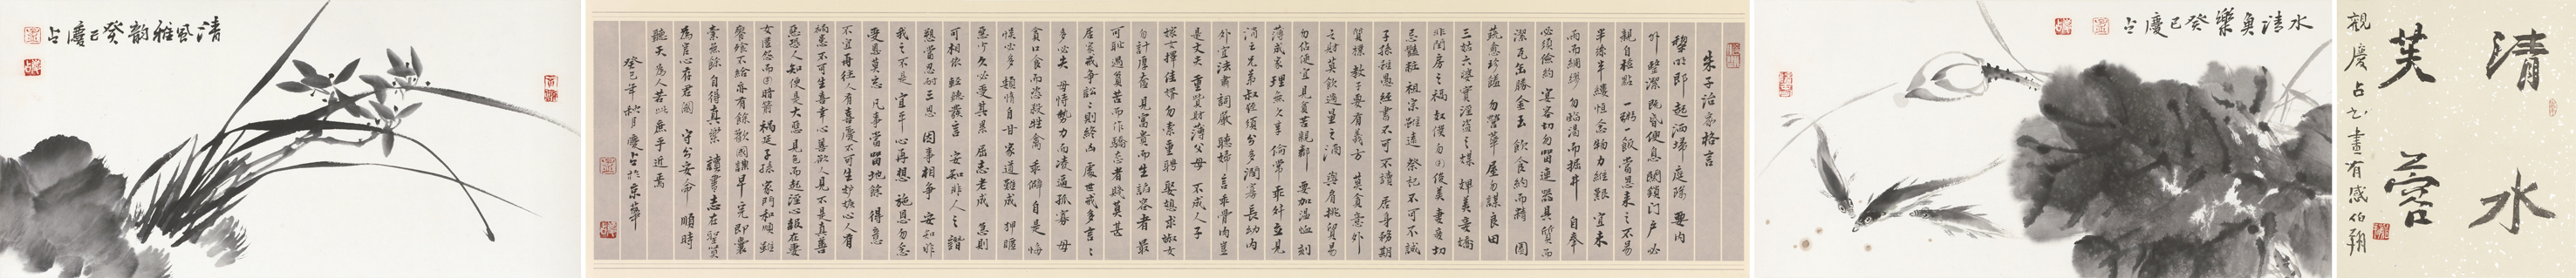 清水
芙蓉
觀慶占書畫有感伯翔
水清魚樂癸巳慶占
朱子治家格言
黎明即起洒掃庭除要內
外整潔既昏便息關鎖門戶必
親自檢點一粥一飯當思來之不易
半絲半縷恒念物力維艱宜未
雨而綢繆勿臨渴而掘井自奉
必須儉約宴客切勿留連器具質而
潔瓦缶勝金玉飲食約而精園
蔬愈珍饈勿營華屋勿謀良田
三姑六婆實淫盜之媒婢美妾嬌
非閨房之福奴僕勿用俊美妻妾切
忌豔粧祖宗雖遠祭祀不可不誠
子孫雖愚經書不可不讀居身務期
質樸教子要有義方莫貪意外
之財莫飲過量之酒與肩挑貿易
勿佔便宜見貧苦親鄰要加溫恤刻
薄成家理無久享倫常乖舛立見
消亡兄弟叔侄須分多潤寡長幼內
外宜法肅詞嚴聽婦言乖骨肉豈
是丈夫重貲財薄父母不成人子
嫁女擇佳婿勿索重聘娶媳求淑女
勿計厚奩見富貴而生諂容者最
可恥遇貧苦而作驕態者賤莫甚
居家戒爭訟訟則終凶處世戒多言言
多必失毋恃勢力而凌逼孤寡毋
貪口食而恣殺牲禽乖僻自是悔
悞必多頹惰自甘家道難成狎暱
惡少久必受其累屈志老成急則
可相依輕聽發言安知非人之譖
愬當忍耐三思因事相爭安知非
我之不是宜平心再想施恩勿念
受恩莫忘凡事當留地餘得意
不宜再往人有喜慶不可生妒嫉心人有
禍患不可生喜幸心善欲人見不是真善
惡恐人知便是大惡見色而起淫心報在妻
女匿怨而用暗箭禍延子孫家門和順雖
饔飧不給亦有餘歡國課早完即囊
橐無餘自得真樂讀書志在聖賢
為官心存君國守分安命順時
聽天為人若此庶乎近焉
癸巳年秋月慶占於京華
清風雅韻癸巳慶占